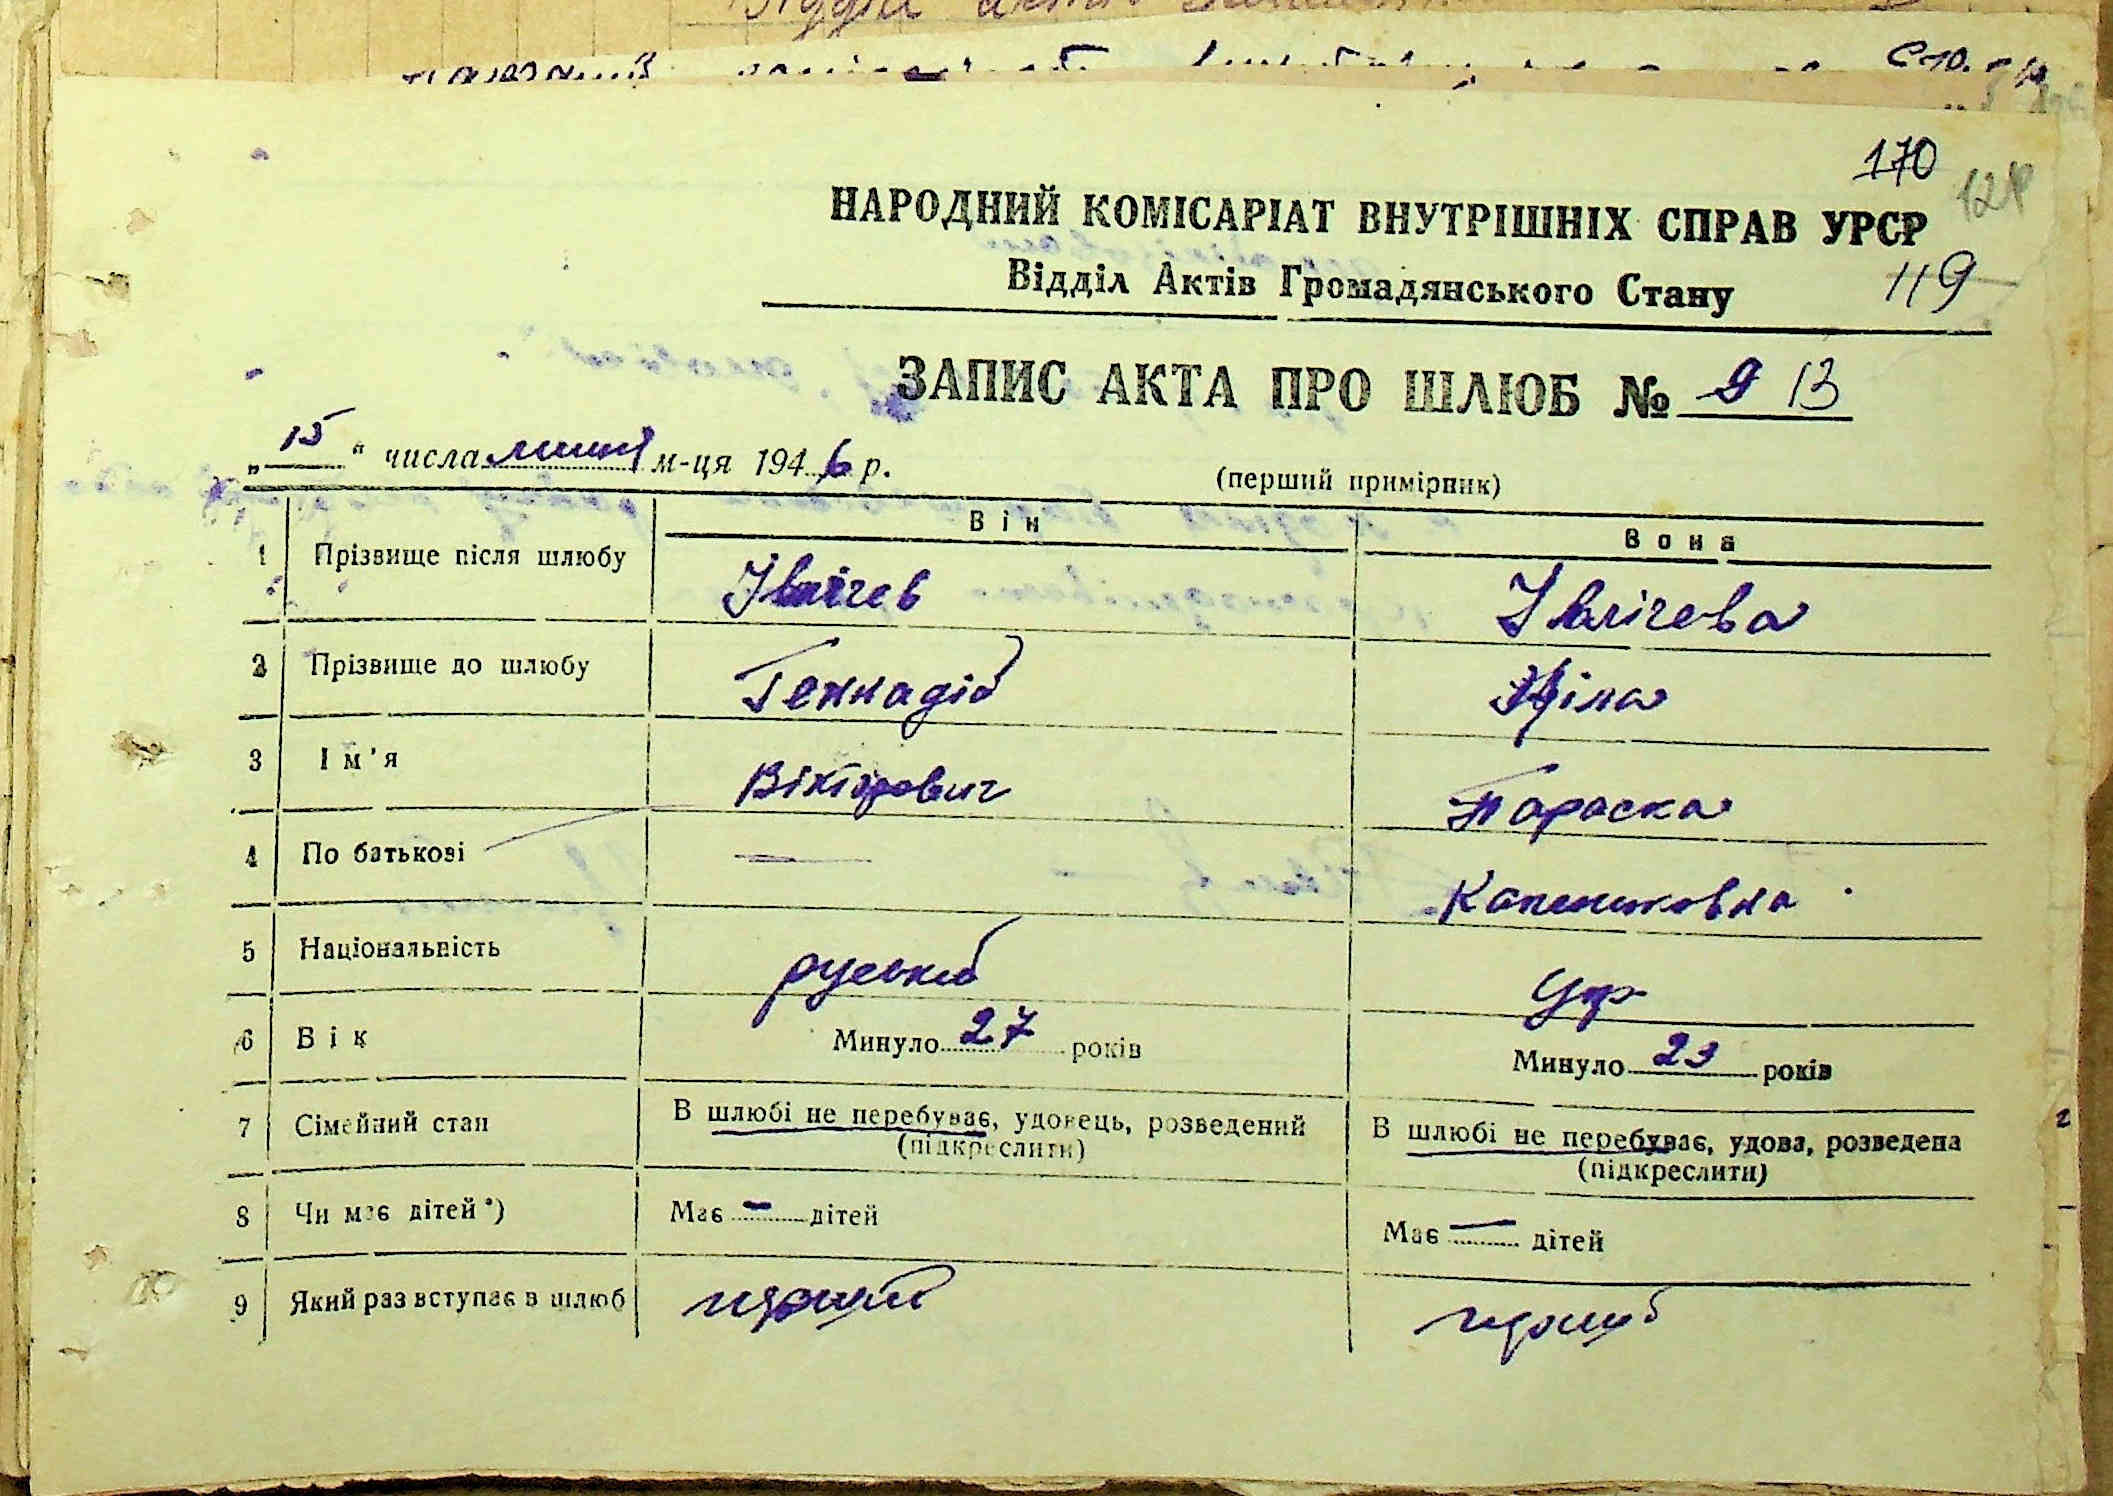 170
НАРОДНИЙ КОМІСАРІАТ ВНУТРІШНІХ СПРАВ УРСР
Відділ Актів Громадянського Стану
119
ЗАПИС АКТА ПРО ШЛЮБ № 9 13
„15“ числа липня м-ця 1946 р.
(перший примірник)
Він
Вона
1 Прізвище після шлюбу Івлічев Івлічева
2 Прізвище до шлюбу Геннадій
3 Ім'я Вікторович Параска
4 По батькові —
5 Національність руський Укр
6 Вік Минуло 27 років Минуло 23 років
7 Сімейний стан В шлюбі не перебуває, удовець, розведений (підкреслити) В шлюбі не перебуває, удова, розведена (підкреслити)
8 Чи має дітей*) Має — дітей Має — дітей
9 Який раз вступає в шлюб перший перший